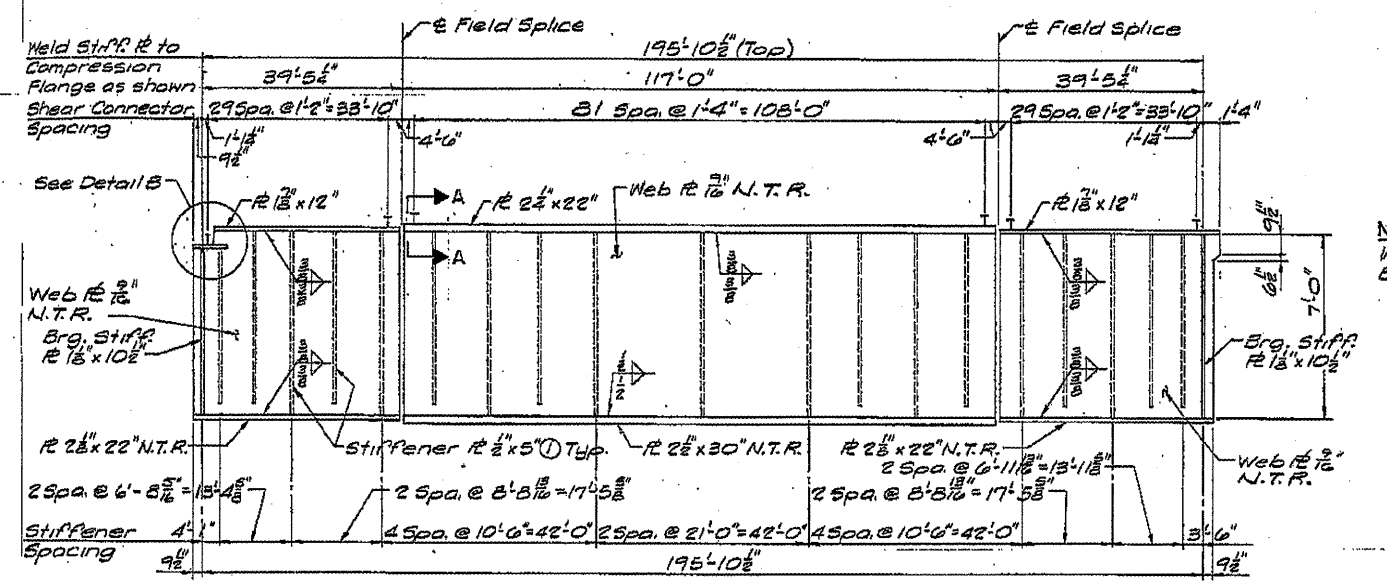 ℄ Field Splice
℄ Field Splice
Weld Stiff. ℄ to
Compression
Flange as shown
195'-10½" (Top)
39'-5¼"
117'-0"
39'-5¼"
Shear Connector
Spacing
29 Spa. @ 1'-2" = 33'-10"
81 Spa. @ 1'-4" = 108'-0"
29 Spa. @ 1'-2" = 33'-10"
1'-4"
1'-1¼"
9½"
4'-6"
4'-6"
1'-1¼"
See Detail B
℄ 1⅞" x 12"
A
℄ 2¼" x 22"
Web ℄ 9/16" N.T.R.
℄ 1⅞" x 12"
A
9½"
6½"
7'-0"
Web ℄ 9/16"
N.T.R.
Brg. Stiff.
℄ 1⅛" x 10½"
Brg. Stiff.
℄ 1⅛" x 10½"
℄ 2⅛" x 22" N.T.R.
Stiffener ℄ ½" x 5" ① Typ.
℄ 2½" x 30" N.T.R.
℄ 2⅛" x 22" N.T.R.
Web ℄ 9/16"
N.T.R.
2 Spa. @ 6'-11 13/16" = 13'-11⅝"
2 Spa. @ 6'-8 5/16" = 13'-4⅝"
2 Spa. @ 8'-8 13/16" = 17'-5⅝"
2 Spa. @ 8'-8 13/16" = 17'-5⅝"
Stiffener
Spacing
4'-1"
4 Spa. @ 10'-6" = 42'-0"
2 Spa. @ 21'-0" = 42'-0"
4 Spa. @ 10'-6" = 42'-0"
3'-6"
9½"
195'-10½"
9½"